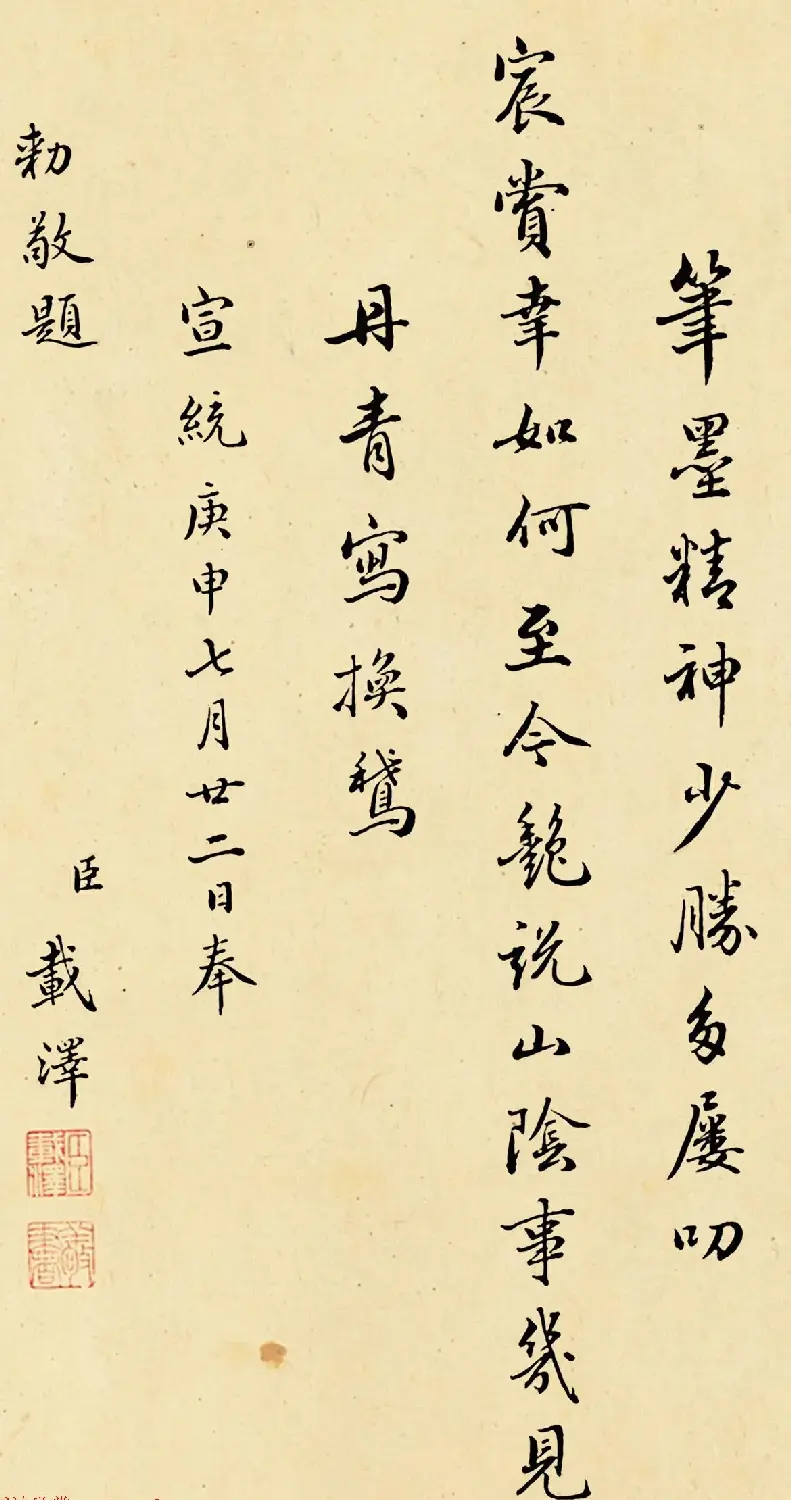 筆墨精神少勝多屢叨
宸賞幸如何至今艷說山陰事幾見
丹青寫換鵝
宣統庚申七月廿二日奉
勅敬題
臣載澤
臣載澤
敬書